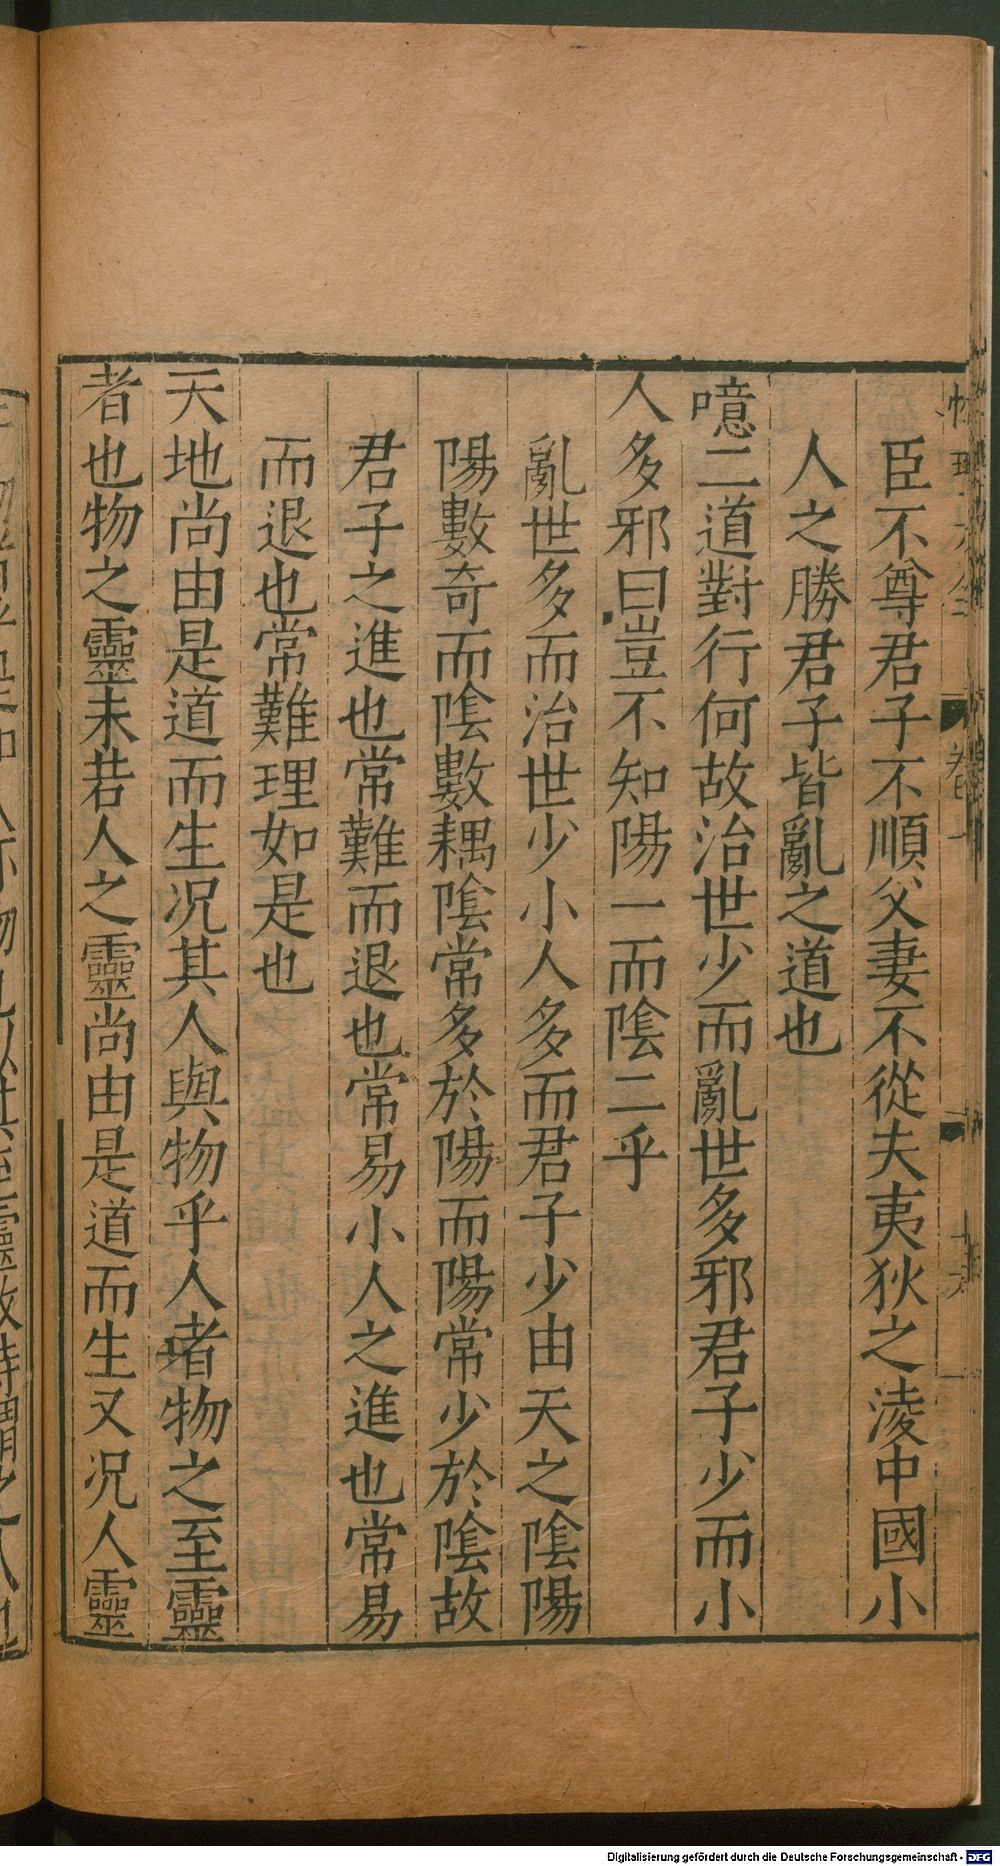 臣不尊君子不順父妻不從夫夷狄之淩中國小
人之勝君子皆亂之道也
噫二道對行何故治世少而亂世多邪君子少而小
人多邪曰豈不知陽一而陰二乎
亂世多而治世少小人多而君子少由天之陰陽
陽數奇而陰數耦陰常多於陽而陽常少於陰故
君子之進也常難而退也常易小人之進也常易
而退也常難理如是也
天地尚由是道而生况其人與物乎人者物之至靈
者也物之靈未若人之靈尚由是道而生又况人靈
Digitalisierung gefördert durch die Deutsche Forschungsgemeinschaft - DFG